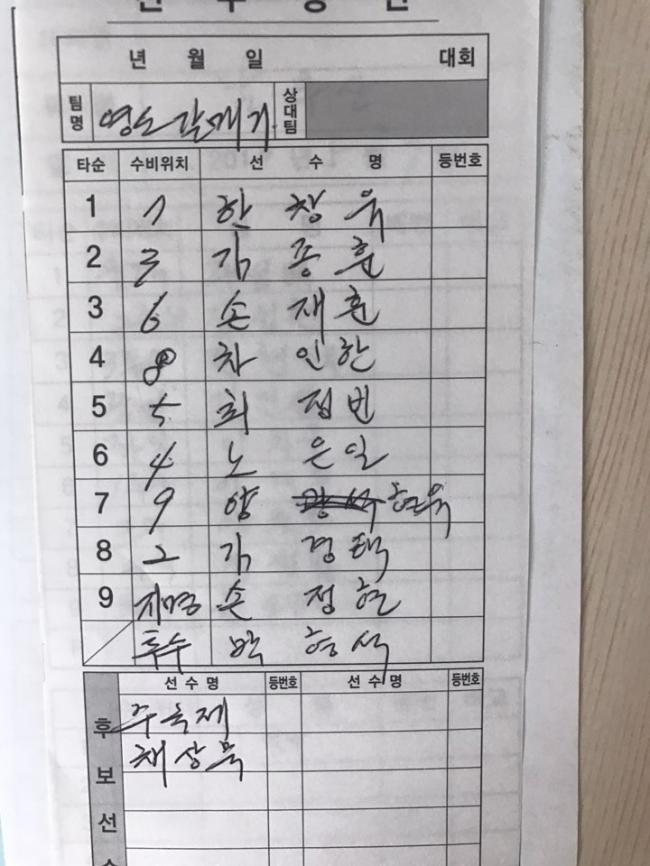 년 월 일 대회
팀명 영도갈매기 상대팀
타순 수비위치 선 수 명 등번호
1 7 한 창 욱
2 3 김 종 훈
3 6 손 재 훈
4 8 차 인 한
5 5 최 집 빈
6 4 노 은 일
7 9 양 현욱
8 2 김 경 택
9 지명 손 정 현
투수 박 형 석
후보선 선 수 명 등번호 선 수 명 등번호
주 욱 제
채 상 묵